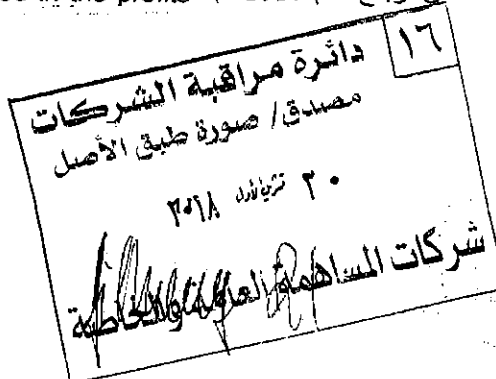 ١٦
دائرة مراقبة الشركات
مصدق/ صورة طبق الأصل
٣٠ تشرين الأول ٢٠١٨
شركات المساهمة العامة والخاصة